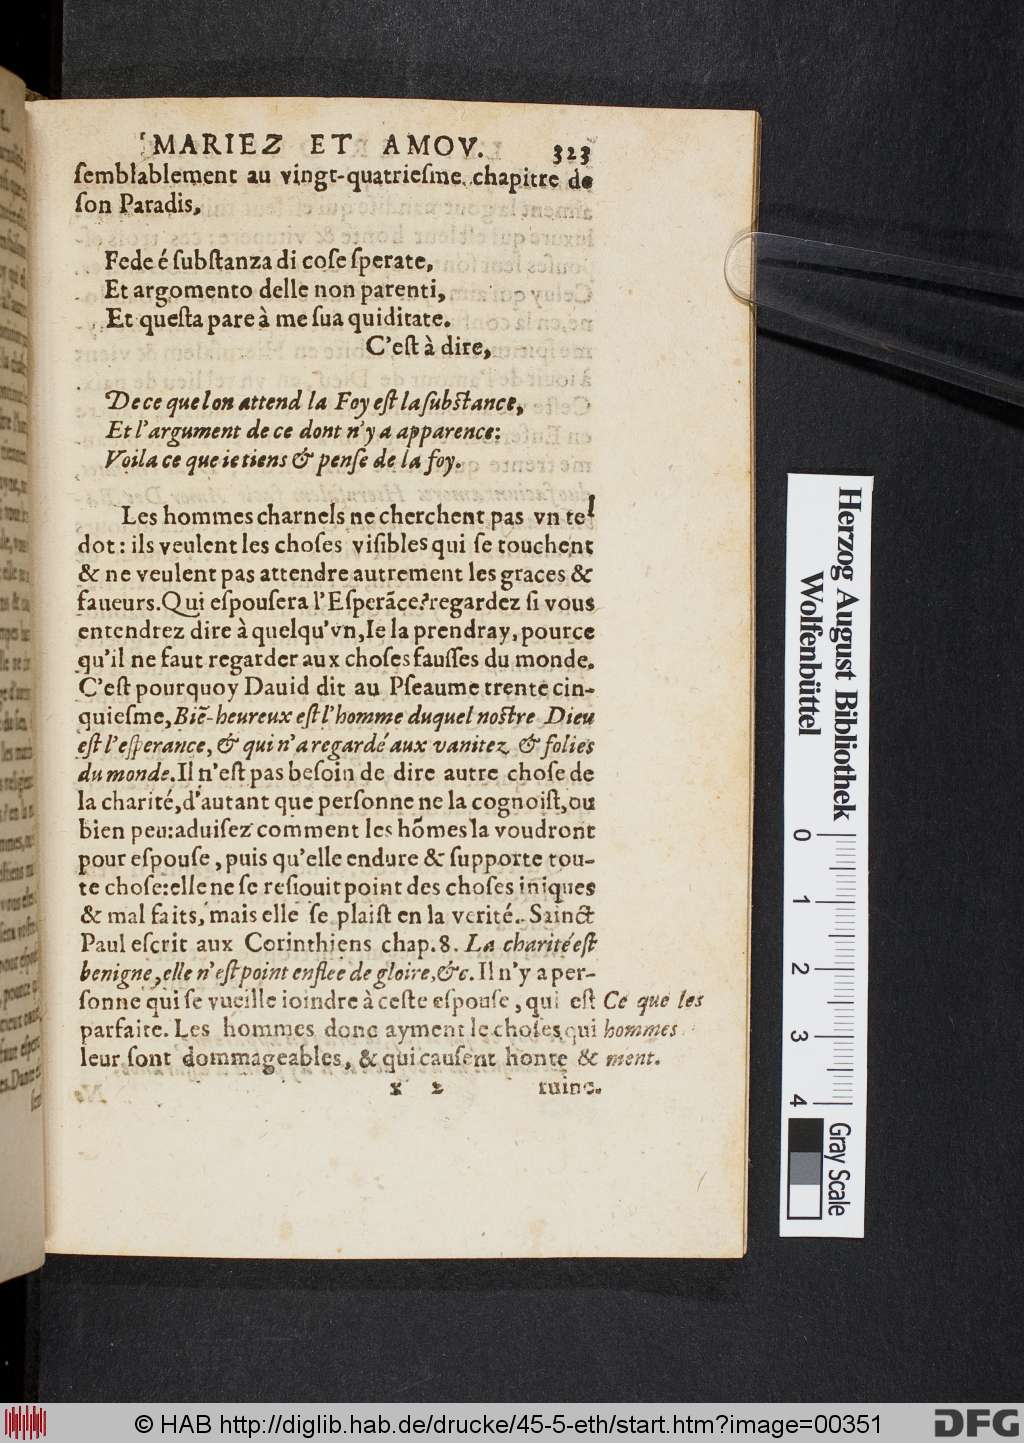 MARIEZ ET AMOV. 323
ſemblablement au vingt-quatrieſme chapitre de
ſon Paradis,
Fede é ſubſtanza di coſe ſperate,
Et argomento delle non parenti,
Et queſta pare à me ſua quiditate.
C'eſt à dire,
De ce que lon attend la Foy eſt la ſubſtance,
Et l'argument de ce dont n'y a apparence:
Voila ce que ie tiens & penſe de la foy.
Les hommes charnels ne cherchent pas vn tel
dot: ils veulent les choſes viſibles qui ſe touchent
& ne veulent pas attendre autrement les graces &
faueurs. Qui eſpouſera l'Eſperãce? regardez ſi vous
entendrez dire à quelqu'vn, Ie la prendray, pource
qu'il ne faut regarder aux choſes fauſſes du monde.
C'eſt pourquoy Dauid dit au Pſeaume trente cin-
quieſme, Biẽ-heureux eſt l'homme duquel noſtre Dieu
eſt l'eſperance, & qui n'a regardé aux vanitez & folies
du monde. Il n'eſt pas beſoin de dire autre choſe de
la charité, d'autant que perſonne ne la cognoiſt, ou
bien peu: aduiſez comment les hõmes la voudront
pour eſpouſe, puis qu'elle endure & ſupporte tou-
te choſe: elle ne ſe reſiouit point des choſes iniques
& mal faits, mais elle ſe plaiſt en la verité. Sainct
Paul eſcrit aux Corinthiens chap. 8. La charité eſt
benigne, elle n'eſt point enflee de gloire, &c. Il n'y a per-
ſonne qui ſe vueille ioindre à ceſte eſpouſe, qui eſt
parfaite. Les hommes donc ayment le choſes qui
leur ſont dommageables, & qui cauſent honte &
Ce que les
hommes
ment.
x 2 ruine.
Herzog August Bibliothek
Wolfenbüttel
0 1 2 3 4
Gray Scale
© HAB http://diglib.hab.de/drucke/45-5-eth/start.htm?image=00351
DFG